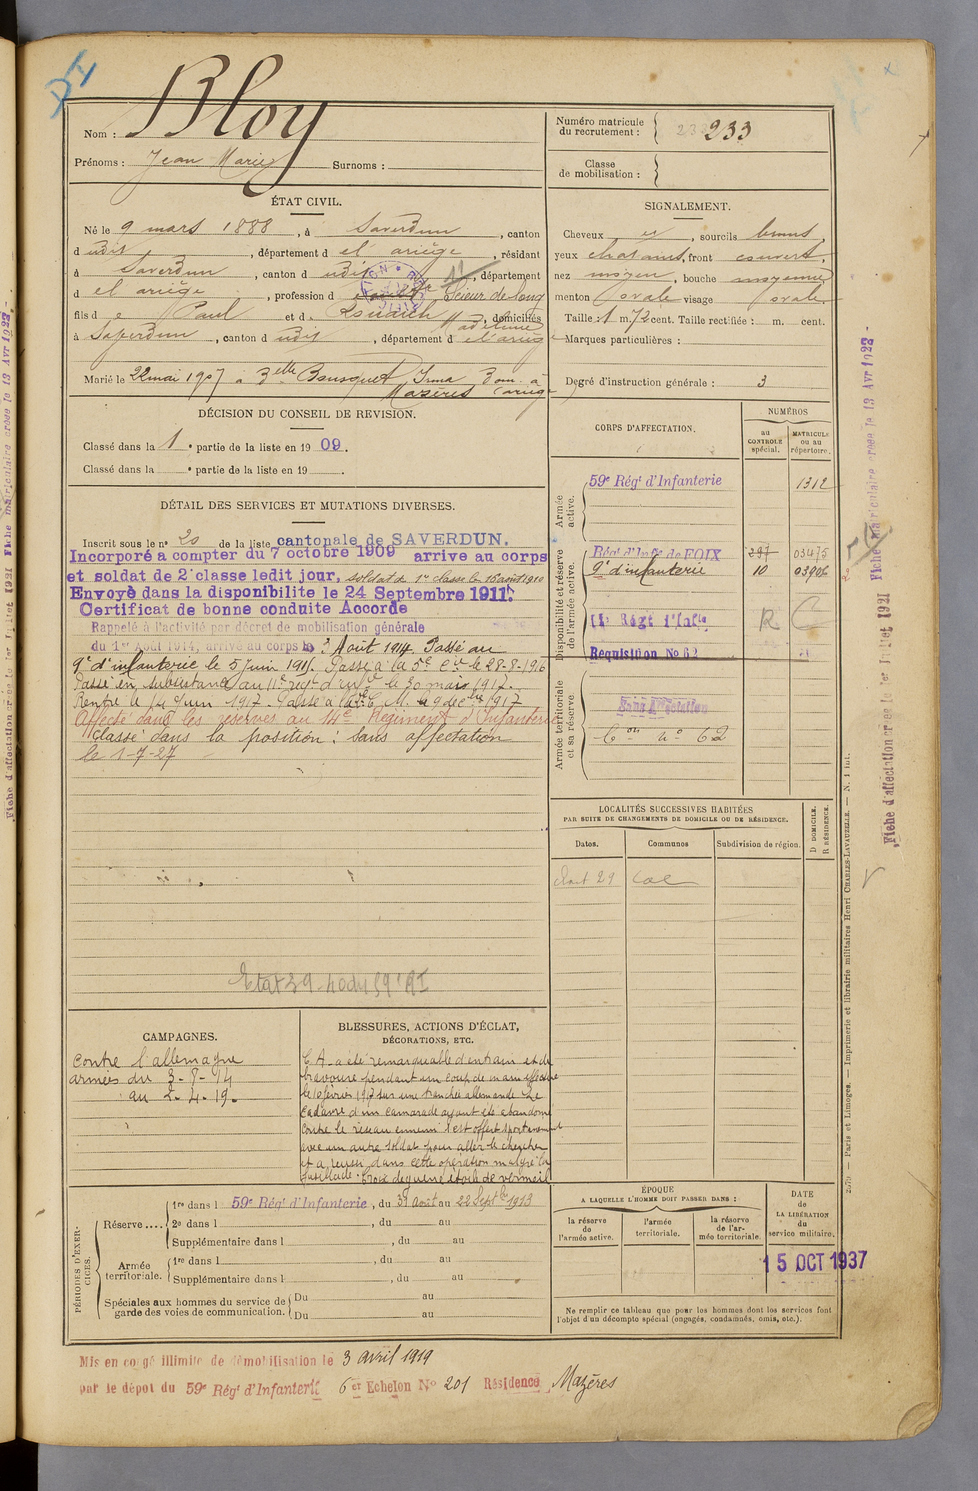 Bloy
Nom :
Prénoms : Jean Marie Surnoms :
Numéro matricule
du recrutement : 233
Classe
de mobilisation :
ÉTAT CIVIL.
Né le 9 mars 1888, à Saverdun, canton
d udit, département d el'ariège, résidant
à Saverdun, canton d udit, département
d el ariège, profession d Scieur de long
fils d e Paul et d Madeleine, domiciliés
à Saverdun, canton d udit, département d el'ariège
Marié le 22 mai 1907 à Delle Bousquet Irma Dom. à
Mazères (ariège)
SIGNALEMENT.
Cheveux et, sourcils bruns
yeux chatains, front couvert,
nez moyen, bouche moyenne
menton ovale visage ovale.
Taille : 1 m. 72 cent. Taille rectifiée : m. cent.
Marques particulières :
Degré d'instruction générale : 3
DÉCISION DU CONSEIL DE REVISION.
Classé dans la 1e partie de la liste en 1909.
Classé dans la e partie de la liste en 19 .
DÉTAIL DES SERVICES ET MUTATIONS DIVERSES.
Inscrit sous le n° 20 de la liste cantonale de SAVERDUN.
Incorporé a compter du 7 octobre 1909 arrive au corps
et soldat de 2e classe ledit jour, soldat de 1re classe le 16 août 1910
Envoyé dans la disponibilite le 24 Septembre 1911.
Certificat de bonne conduite Accorde
Rappelé à l'activité par décret de mobilisation générale
du 1er Août 1914, arrive au corps le 3 Août 1914. Passé au
9e d'infanterie le 5 Juin 191 . Passé à la 5e Cie le 28-8-1916
Passé en subsistance au 11e régt d'infie le 30 mars 1917.
Rentré le 14 Juin 1917. Passé à la C. M. le 9 décbre 1917
Affecté dans les réserves au 14e Régiment d'Infanterie
Classé dans la position : sans affectation
le 1-7-27
Etat 29
CORPS D'AFFECTATION.
NUMÉROS
au
CONTROLE
spécial.
MATRICULE
ou au
répertoire.
Armée
active.
59e Régt d'Infanterie 1312
Disponibilité et réserve
de l'armée active.
Régt d'Infie de FOIX 297 03475
9e d'infanterie 10 03906
Régt d'Infie R C
Réquisition No 62
Armée territoriale
et sa réserve
Sans Affectation
Con no 62
LOCALITÉS SUCCESSIVES HABITÉES
PAR SUITE DE CHANGEMENTS DE DOMICILE OU DE RÉSIDENCE.
Dates.
Communes
Subdivision de région.
D DOMICILE.
R RÉSIDENCE.
CAMPAGNES.
Contre l'allemagne
armées du 3-8-14
au 2-4-19.
BLESSURES, ACTIONS D'ÉCLAT,
DÉCORATIONS, ETC.
C A - a été remarquable d'entrain et de
bravoure pendant un coup de main effectué
le 10 février 1917 sur une tranchée allemande. Le
Cadavre d'un camarade ayant été abandonné
contre le réseau ennemi s'est offert spontanément
avec un autre soldat pour aller le chercher
et a réussi dans cette opération malgré la
fusillade. Croix de guerre étoile de vermeil
PÉRIODES D'EXERCICES.
Réserve....
1re dans l 59e Régt d'Infanterie, du 31 Août au 22 Septbre 1913
2e dans l , du au
Supplémentaire dans l , du au
Armée
territoriale.
1re dans l , du au
Supplémentaire dans l , du au
Spéciales aux hommes du service de
garde des voies de communication.
Du au
Du au
ÉPOQUE
A LAQUELLE L'HOMME DOIT PASSER DANS :
la réserve
de
l'armée active.
l'armée
territoriale.
la réserve
de l'ar-
mée territoriale.
DATE
de
LA LIBÉRATION
du
service militaire.
15 OCT 1937
Ne remplir ce tableau que pour les hommes dont les services font
l'objet d'un décompte spécial (engagés, condamnés, omis, etc.).
Mis en congé illimité de démobilisation le 3 avril 1919
par le dépot du 59e Régt d'Infanterie 6er Echelon No 201 Résidence Mazères
Fiche matriculaire créée le 13 Avr 1923
Fiche d'affectation créée le 1er Juillet 1921
Paris et Limoges. — Imprimerie et librairie militaires Henri CHARLES-LAVAUZELLE.